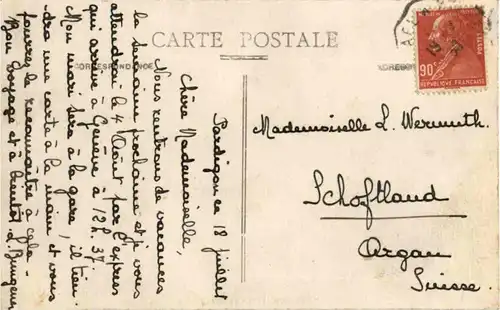 CARTE POSTALE
CORRESPONDANCE
Pardigon ce 18 juillet
Chère Mademoiselle,
Nous rentrons de vacances
la semaine prochaine et je vous
attendrai le 4 Août par l'express
qui arrive à Genève à 12h.37.
Mon mari sera à la gare, il tien-
dra une carte à la main et vous
pourrez le reconnaître à cela-
Bon voyage et à bientôt
Mademoiselle L. Wermuth.
Schoftland
Argau
Suisse.
90
POSTES
REPUBLIQUE FRANÇAISE